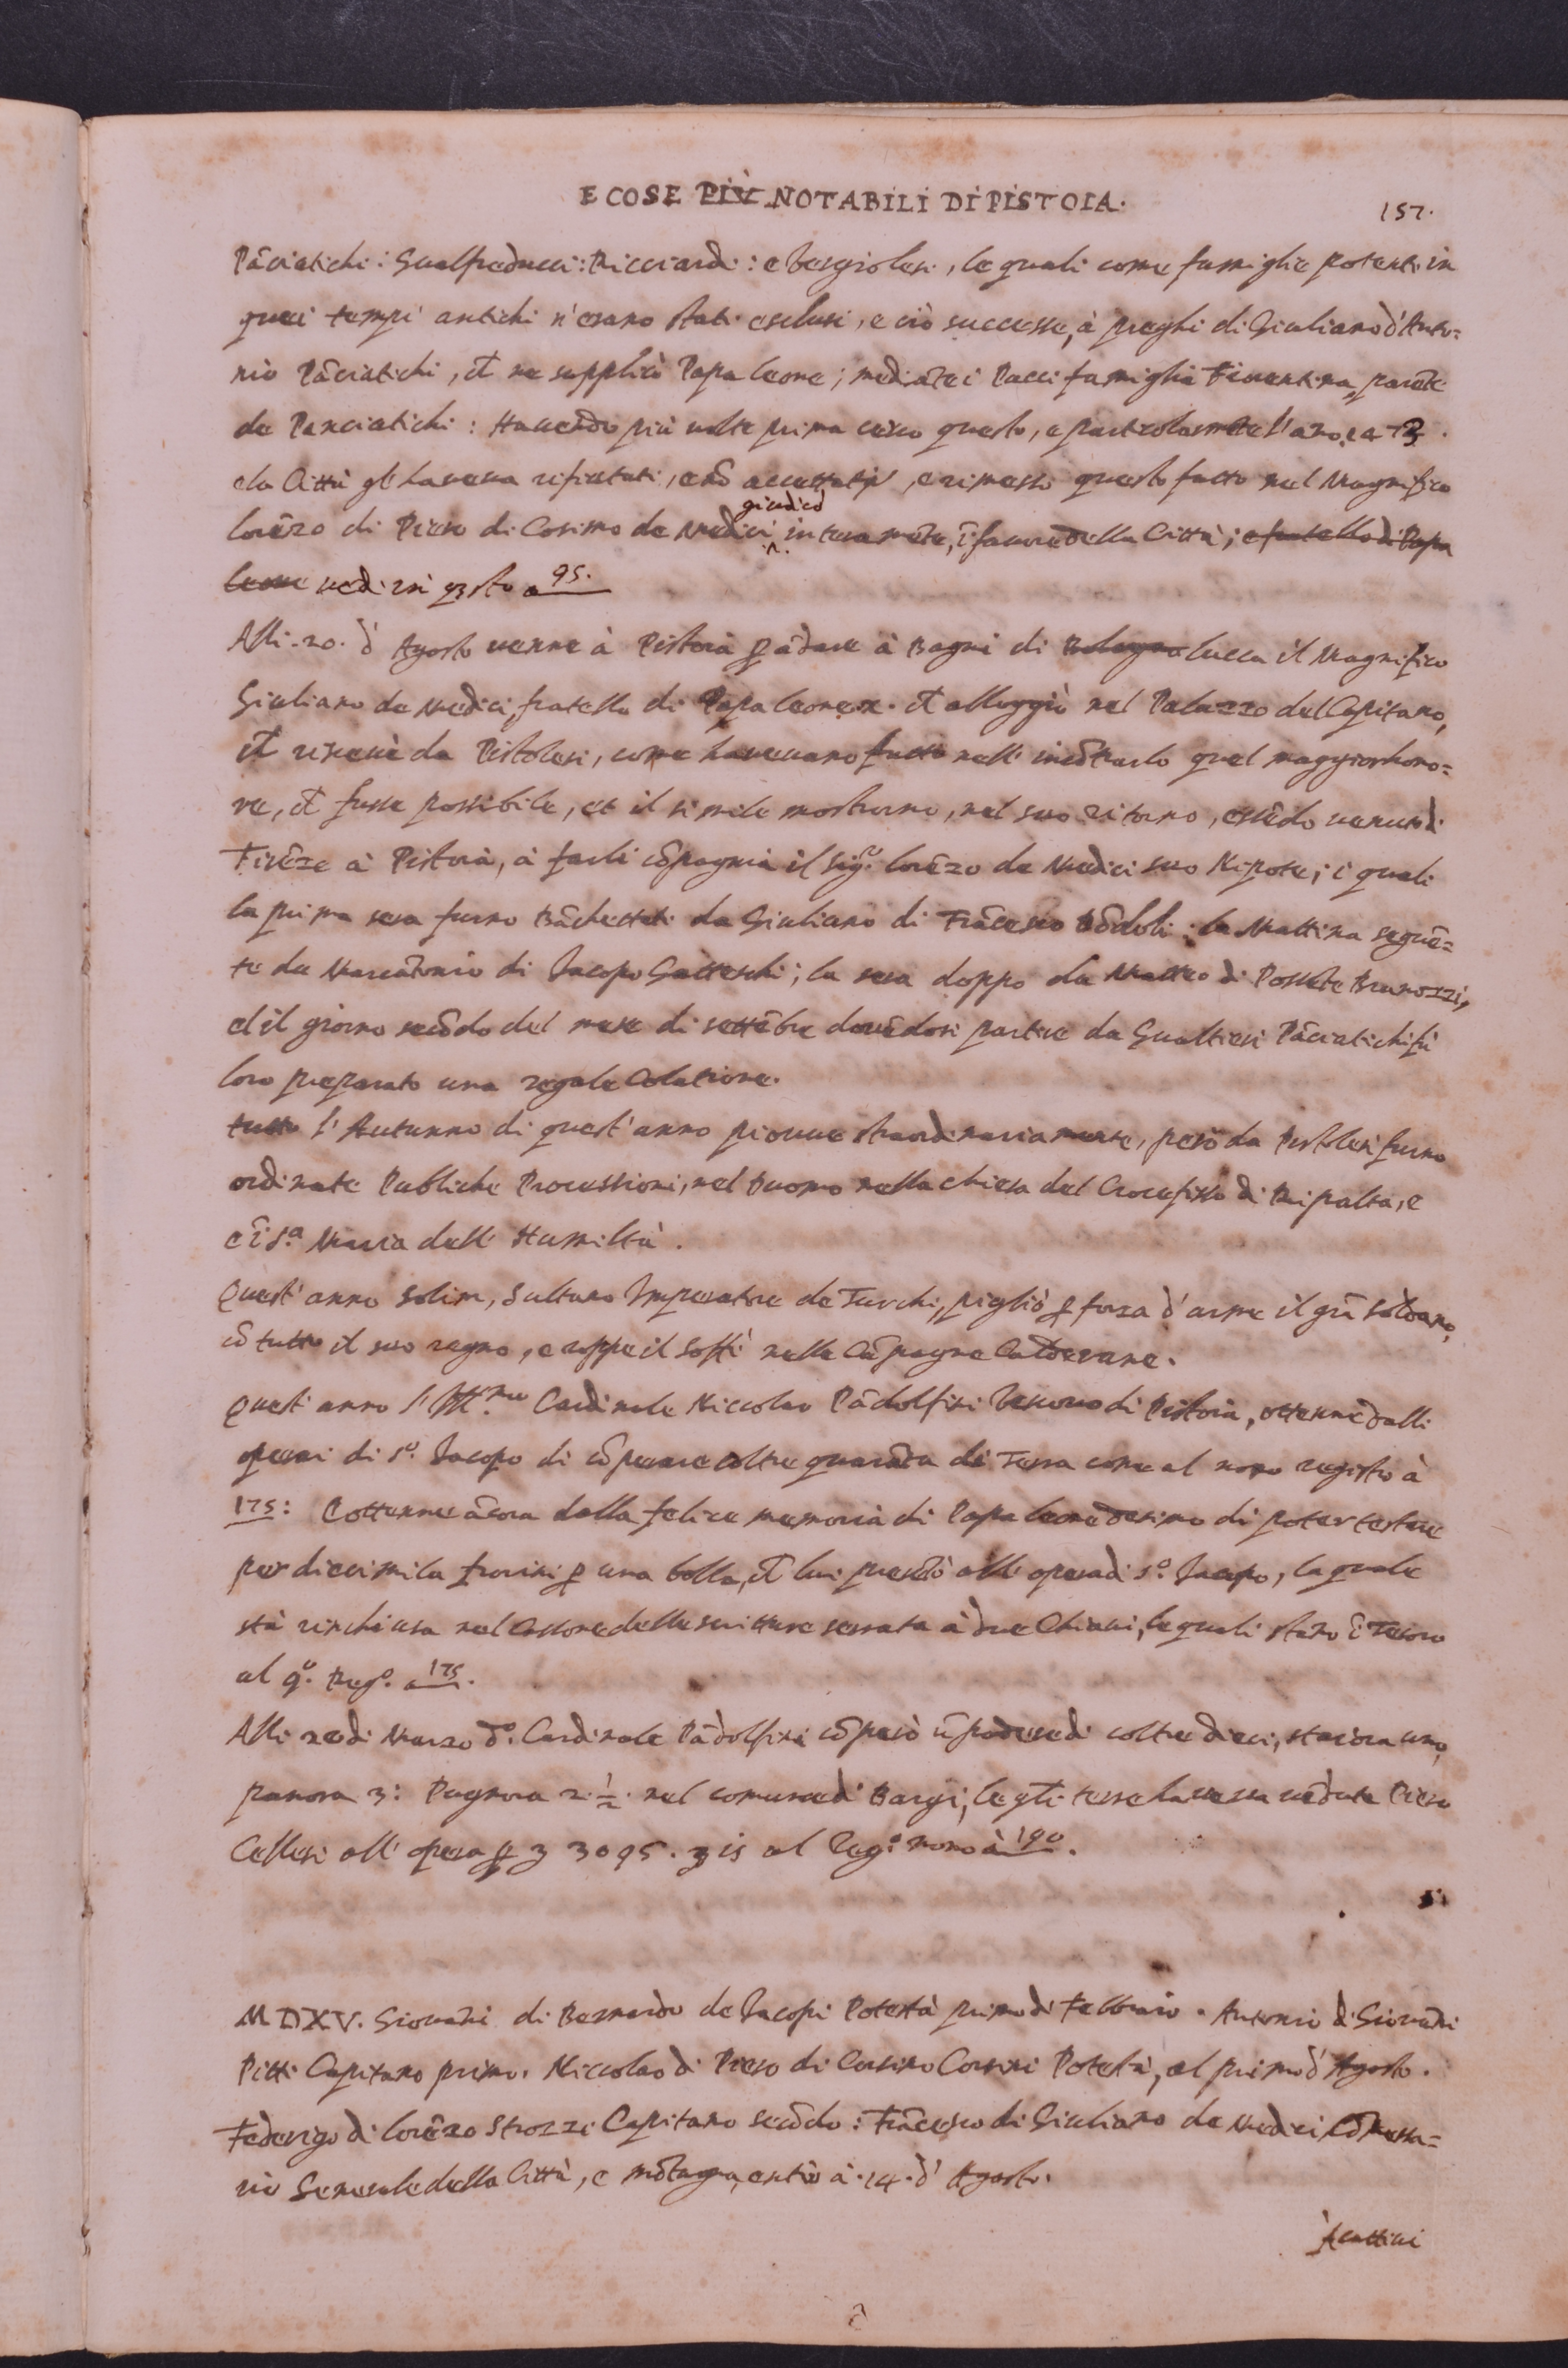 E COSE PIÙ NOTABILI DI PISTOIA.
157.
Pãciatichi: Gualfreducci: Ricciardi: e Vergiolesi, le quali come famiglie potenti in
quei tempi antichi n'erano stati esclusi, e ciò successe, à preghi di Giuliano d'Anto=
nio Pãciatichi, che ne supplicò Papa Leone; mediãte i Pacci famiglia Fiorentina, parẽte
de Panciatichi: Havendo più volte prima cerco questo, e particolarmẽte l'ano 1473.
e la Città gl'haveva rifiutati, e nõ accettati, e rimesso questo fatto nel Magnifico
Lorẽzo di Piero di Cosimo de Medici giudicò interamẽte, ĩ favore della Città; e fratello di Papa
Leone vedi in qsto a 95.
Alli .20. d'Agosto venne à Pistoia p ãdare à Bagni di Bologna Lucca il Magnifico
Giuliano de Medici, fratello di Papa Leone X. che alloggiò nel Palazzo del Capitano,
che ricevè da Pistolesi, come havevano fatto nell'incõtrarlo quel maggior hono=
re, che fusse possibile, et il simile mostrorno, nel suo ritorno, essẽdo venuto di
Firẽze à Pistoia, à farli cõpagnia il sig.re Lorẽzo de Medici suo Nipote; i quali
la prima sera furno Bãchettati da Giuliano di Frãcesco Bõdoli: la Mattina seguẽ=
te da Marcãtonio di Jacopo Gatteschi; la sera doppo da Matteo di Possẽte Brunozzi,
et il giorno secõdo del mese di settẽbre dovẽdosi partire da Gualtieri Pãciatichi fù
loro preparato una regale Colatione.
tutto l'Autunno di quest'anno piovve straordinariamente, però da Pistolesi furno
ordinate Publiche Processioni, nel Duomo nella chiesa del Crocefisso di Ripalta, e
e ĩ S.a Maria dell'Humiltà.
Quest'anno Solim, Sultano Imperatore de Turchi, pigliò p forza d'arme il grã Soldano,
cõ tutto il suo regno, e roppe il Soffi nelle Cãpagne Calderane.
Quest'anno l'Ill.mo Cardinale Niccolao Pãdolfini Vescovo di Pistoia, ottenne dalli
operai di S.o Jacopo di cõperare coltre quarãta di Terra come al nono registro à
175: E ottenne ãcora dalla felice memoria di Papa Leone decimo di poter testare
per diecimila fiorini p una bolla, che lui prestò all'opera di S.o Jacopo, la quale
stà rinchiusa nel Cassone delle scritture serrata à due Chiavi, le quali stano ĩ Tesoro
al 9.o Reg.o a 175.
Alli 20 di Marzo d.o Cardinale Pãdolfini cõperò ũ podere di coltre dieci, staiora uno,
panora 3: Pugnora 2 ½. nel comune di Bargi, le qli terre haveva vẽdute Piero
Cellesi all'opera p 3095. al Reg.o nono à 190.
MDXV. Giovãni di Bernardo de Jacopi Potestà primo di Febbraio. Antonio di Giovãni
Pitti Capitano primo. Niccolao di Piero di Corsino Corsini Potestà, al primo d'Agosto.
Federigo di Lorẽzo Strozzi Capitano secõdo: Frãcesco di Giuliano de Medici Cõmessa=
rio Generale della Città, e mõtagna, entrò à .14. d'Agosto.